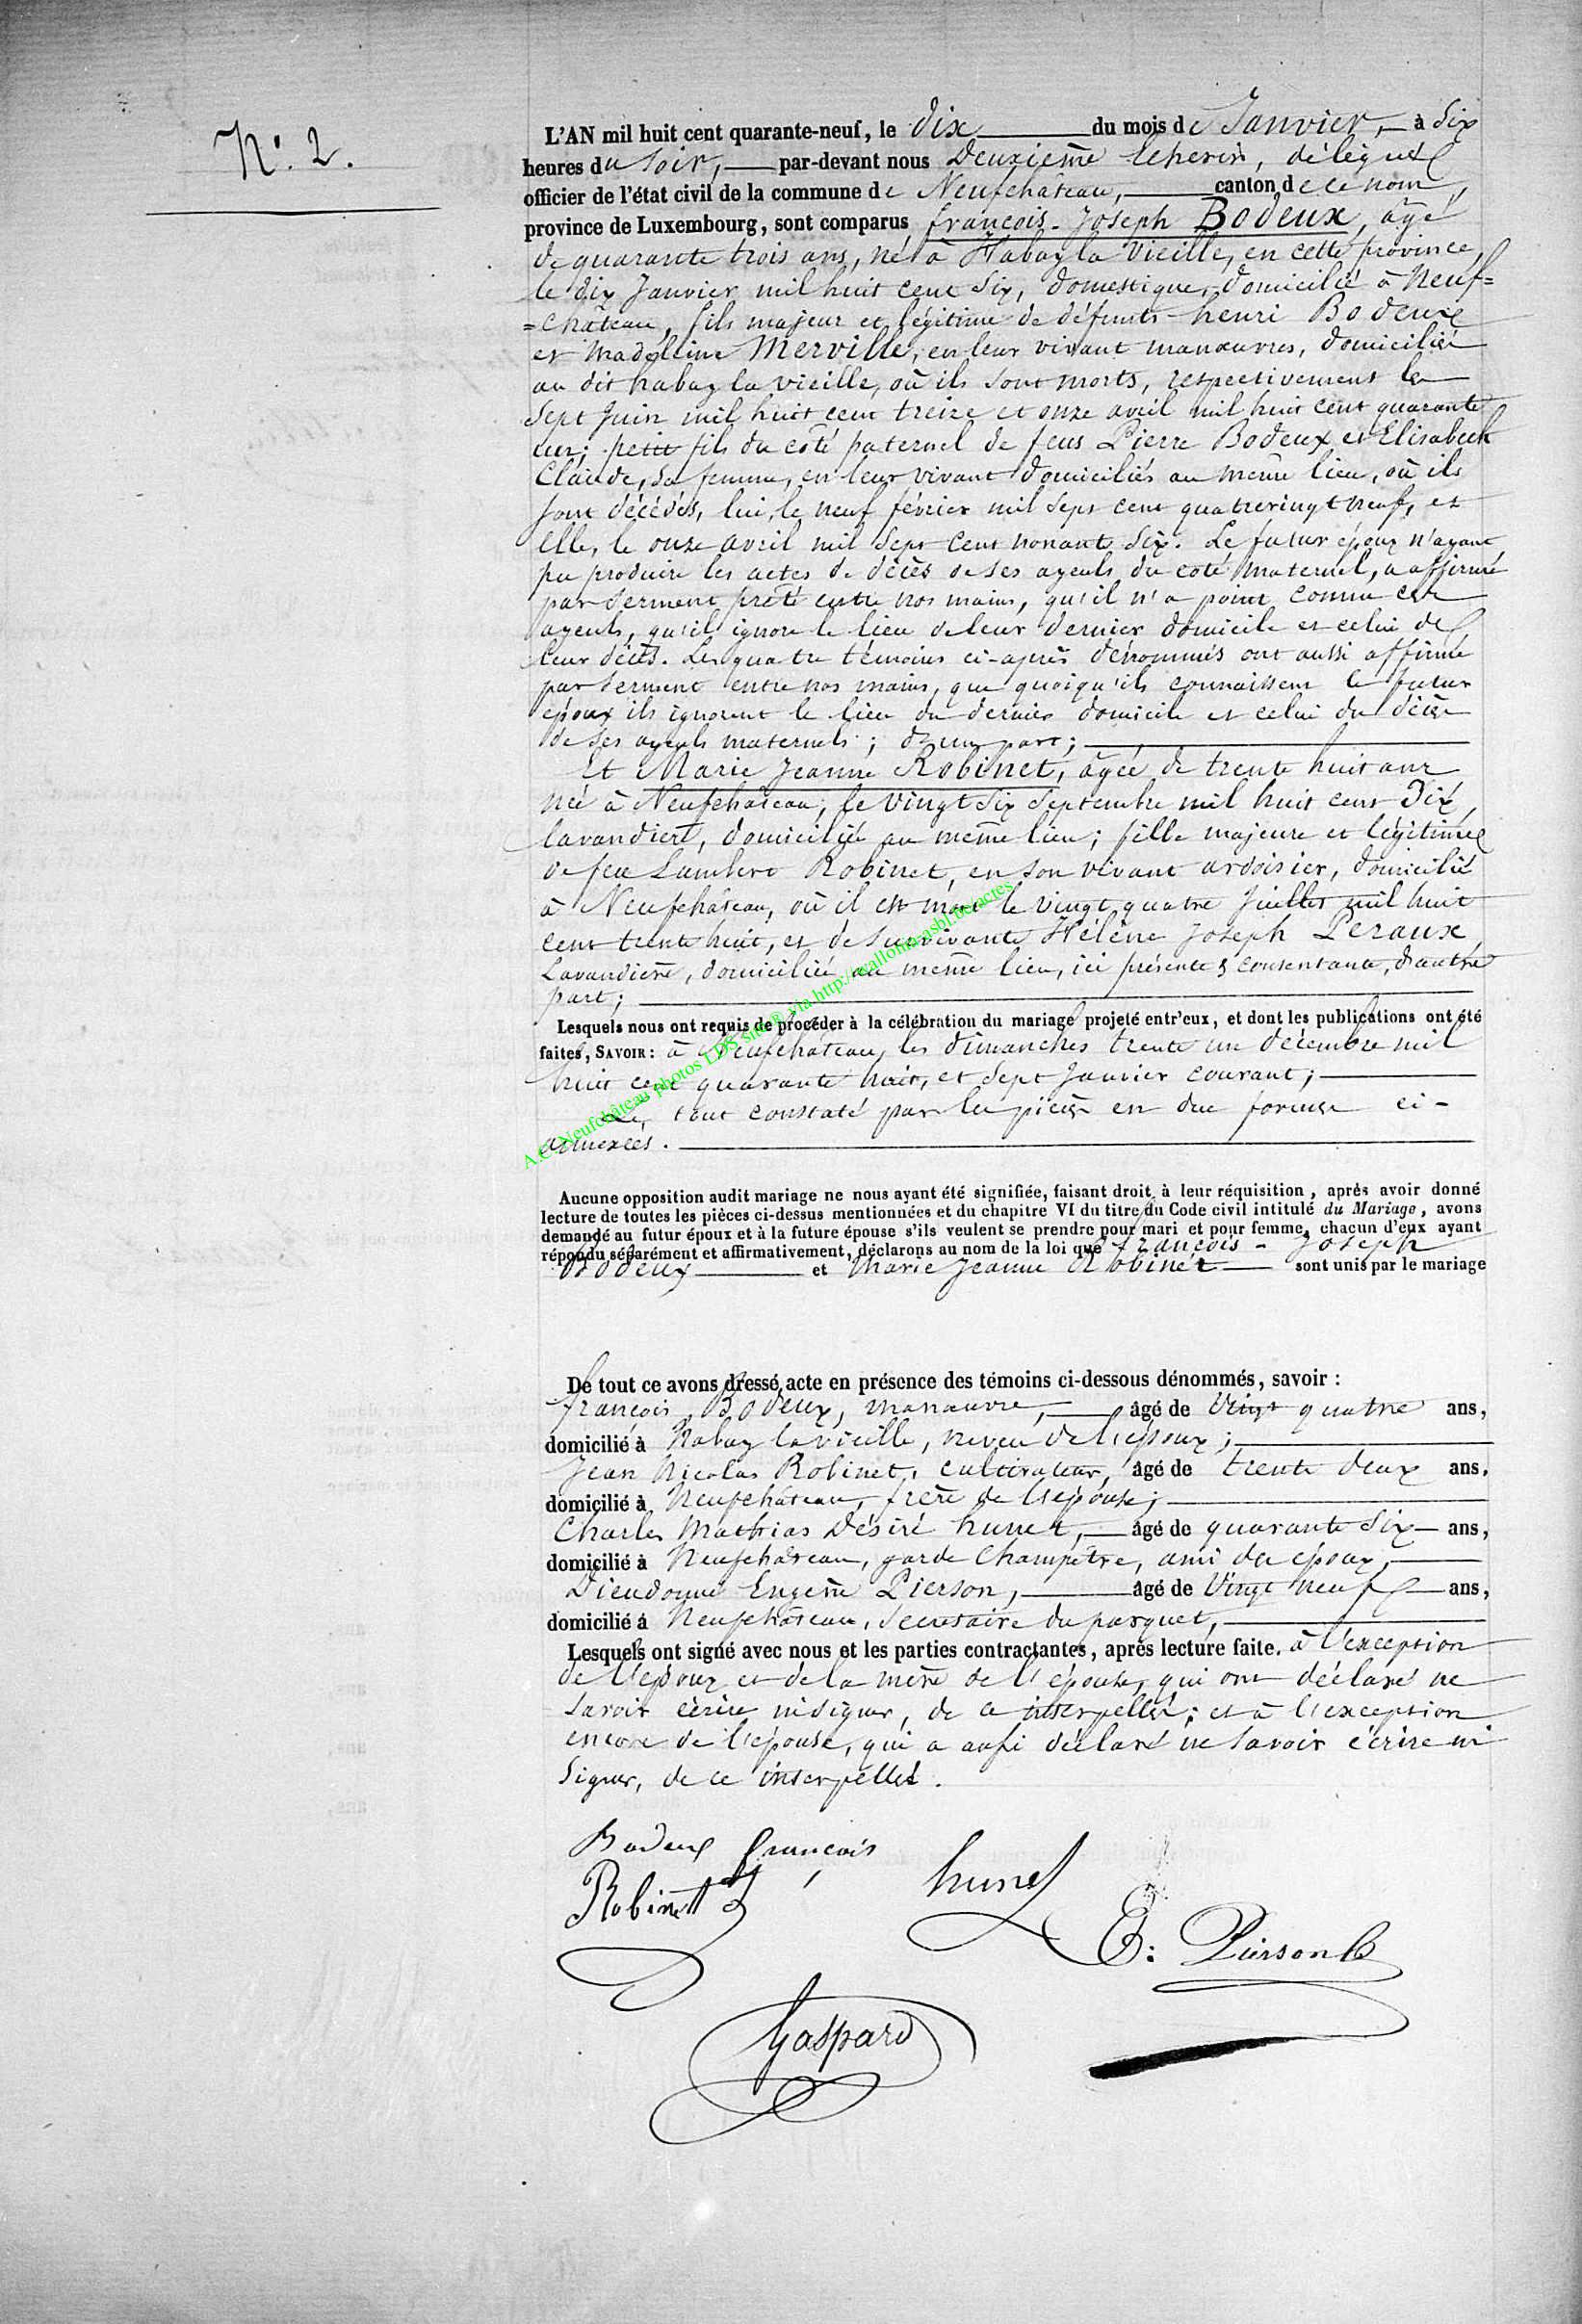 N°. 2.
L'AN mil huit cent quarante-neuf, le dix du mois de Janvier, à Six
heures du Soir, par-devant nous Deuxième Echevin, délégué
officier de l'état civil de la commune de Neufchâteau, canton de ce nom,
province de Luxembourg, sont comparus françois-Joseph Bodeux, âgé
de quarante trois ans, né à Habay la Vieille, en cette province,
le dix Janvier mil huit cent Six, domestique, domicilié à Neuf=
=Château, fils majeur et légitime de défunts henri Bodeux
et Madelline Merville, en leur vivant manœuvres, domiciliés
au dit habay la vieille, où ils sont morts, respectivement le
Sept Juin mil huit cent treize et onze avril mil huit cent quarante
un; petit fils du côté paternel de feus Pierre Bodeux et Elisabeth
Claude, sa femme, en leur vivant domiciliés au même lieu, où ils
sont décédés, lui, le neuf février mil sept cent quatrevingt neuf, et
elle, le onze avril mil sept cent nonante six. Le futur époux n'ayant
pu produire les actes de décès de ses ayeuls du coté maternel, a affirmé
par serment prêté entre nos mains, qu'il n'a point connu ces
ayeuls, qu'il ignore le lieu de leur dernier domicile et celui de
leur décès. Les quatre témoins ci-après dénommés ont aussi affirmé
par serment entre nos mains, que quoiqu'ils connaissent le futur
époux ils ignorent le lieu du dernier domicile et celui du décès
de ses ayeuls maternels; d'une part;
Et Marie Jeanne Robinet, âgée de trente huit ans
née à Neufchâteau, le vingt six Septembre mil huit cent Dix,
lavandière, domiciliée au même lieu; fille majeure et légitime
de feu Lambert Robinet, en son vivant ardoisier, domicilié
à Neufchâteau, où il est mort le vingt quatre Juillet mil huit
cent trente huit, et de survivante Hélène Joseph Peraux,
Lavandière, domiciliée au même lieu, ici présente & consentante, d'autre
part;
Lesquels nous ont requis de procéder à la célébration du mariage projeté entr'eux, et dont les publications ont été
faites, SAVOIR: à Neufchâteau, les dimanches trente un décembre mil
huit cent quarante huit, et sept Janvier courant;
Le tout constaté par les pièces en due forme ci-
annexées.
A.C. Neufchâteau photos LDS sita® via http://wallonia-asbl.be/actes
Aucune opposition audit mariage ne nous ayant été signifiée, faisant droit à leur réquisition, après avoir donné
lecture de toutes les pièces ci-dessus mentionnées et du chapitre VI du titre du Code civil intitulé du Mariage, avons
demandé au futur époux et à la future épouse s'ils veulent se prendre pour mari et pour femme, chacun d'eux ayant
répondu séparément et affirmativement, déclarons au nom de la loi que françois-Joseph
Bodeux et Marie Jeanne Robinet sont unis par le mariage
De tout ce avons dressé acte en présence des témoins ci-dessous dénommés, savoir:
françois Bodeux, manœuvre, âgé de Vingt quatre ans,
domicilié à habay la vieille, neveu de l'époux;
Jean Nicolas Robinet, cultivateur, âgé de trente deux ans,
domicilié à Neufchâteau, frère de l'épouse;
Charles Mathias Désiré hunet, âgé de quarante six ans,
domicilié à Neufchâteau, garde Champêtre, ami de époux,
Dieudonné Eugène Pierson, âgé de Vingt neuf ans,
domicilié à Neufchâteau, secrétaire du parquet,
Lesquels ont signé avec nous et les parties contractantes, après lecture faite. à l'exception
de l'époux et de la mère de l'épouse, qui ont déclaré ne
savoir écrire ni signer, de ce interpellés; et à l'exception
encore de l'épouse, qui a aussi déclaré ne savoir écrire ni
Signer, de ce interpellée.
Bodeux françois
Robinet
hunet
E: Pierson
Gaspard